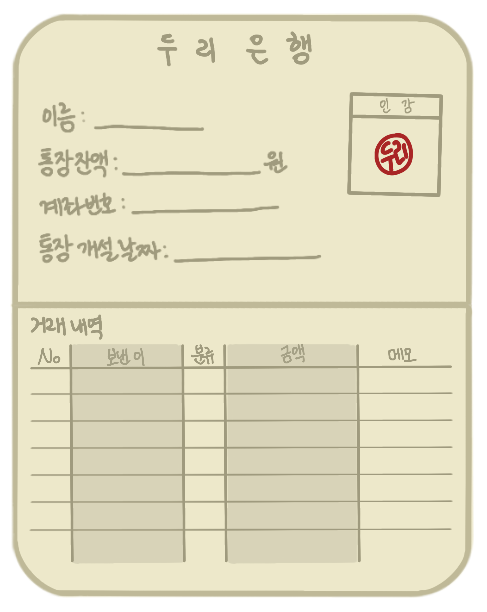 두 리 은 행
이름 :
인 감
두리
통장 잔액 : 원
계좌번호 :
통장 개설 날짜 :
거래 내역
No 보낸 이 분류 금액 메모